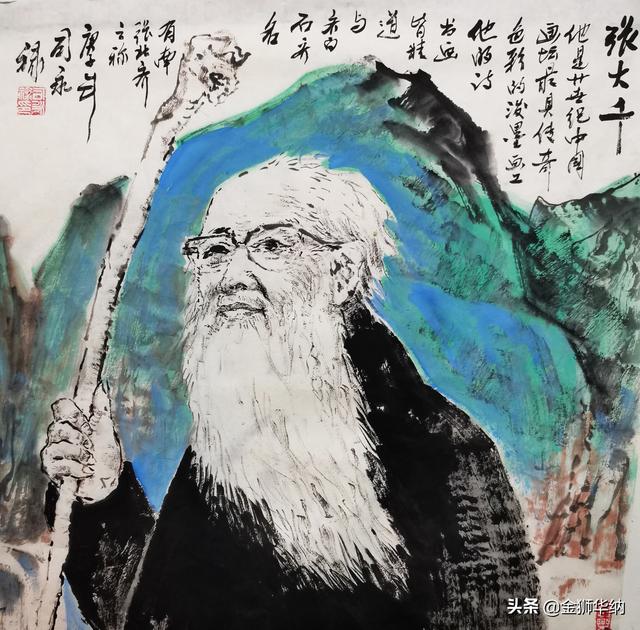 张大千
他是廿世纪中国
画坛最具传奇
色彩的泼墨画工
他的诗
书画
皆精
道
与
齐白
石齐
名
有南
张北齐
之称
司永
禄
头条 @金狮华纳